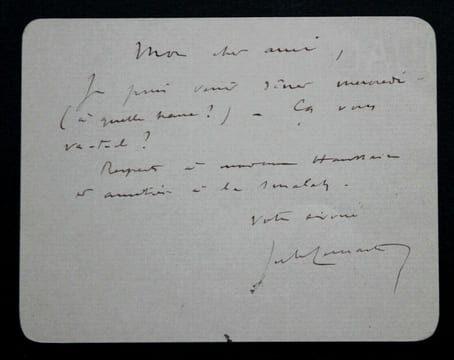 Mon cher ami,
Je puis venir dîner mercredi -
(à quelle heure ?) - Ça vous
va-t-il ?
Respects à madame
et amitiés à la smalah.
Votre dévoué